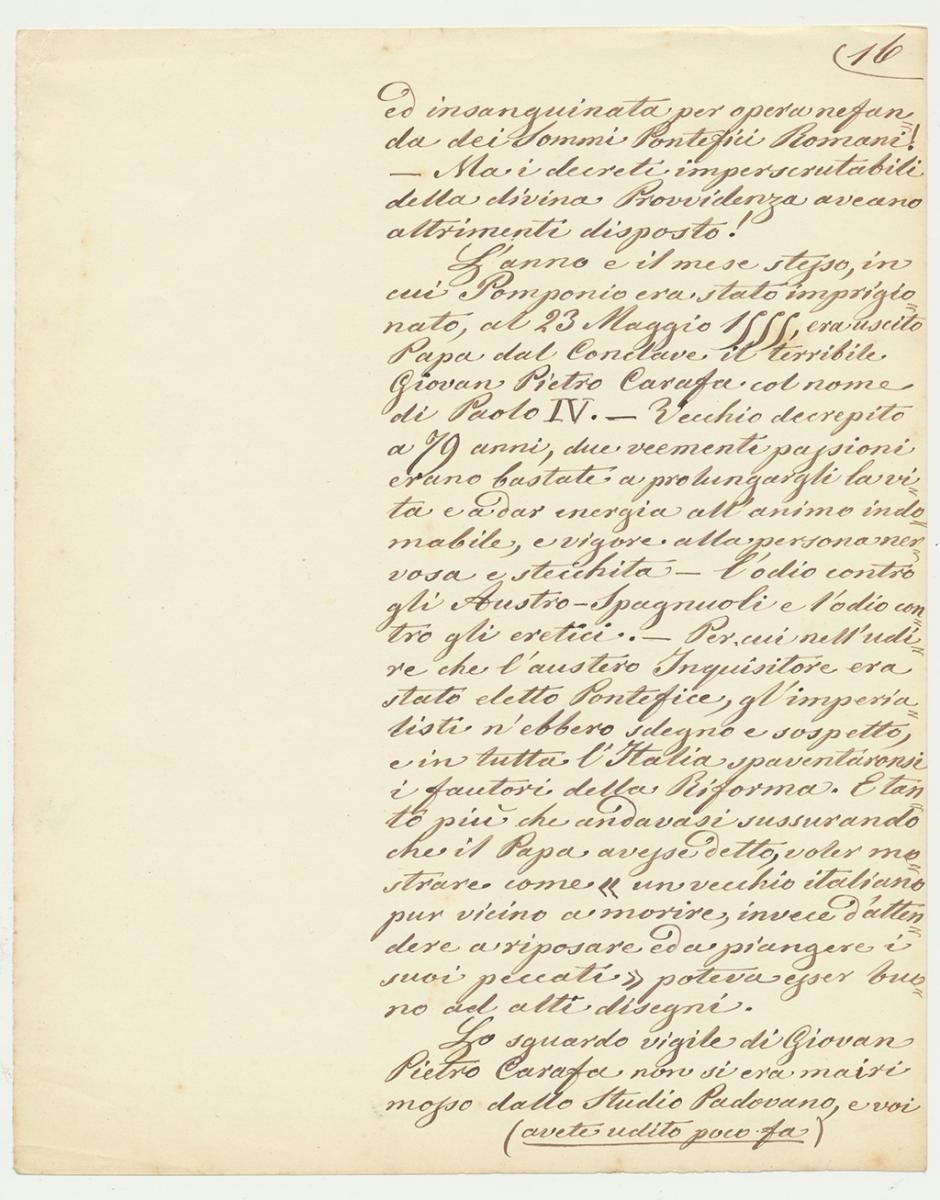 16
ed insanguinata per opera nefan„
da dei Sommi Pontefici Romani!
— Ma i decreti imperscrutabili
della divina Provvidenza aveano
altrimenti disposto!
L'anno e il mese stesso, in
cui Pomponio era stato imprigio„
nato, al 23 Maggio 1555, era uscito
Papa dal Conclave il terribile
Giovan Pietro Carafa col nome
di Paolo IV. — Vecchio decrepito
a 79 anni, due veementi passioni
erano bastate a prolungargli la vi„
ta e a dar energia all'animo indo„
mabile, e vigore alla persona ner„
vosa e stecchita — l'odio contro
gli Austro-Spagnuoli e l'odio con„
tro gli eretici. — Per cui nell'udi„
re che l'austero Inquisitore era
stato eletto Pontefice, gl'imperia„
listi n'ebbero sdegno e sospetto,
e in tutta l'Italia spaventaronsi
i fautori della Riforma. E tan„
to più che andavasi sussurando
che il Papa avesse detto, voler mo„
strare come « un vecchio italiano
pur vicino a morire, invece d'atten„
dere a riposare ed a piangere i
suoi peccati » poteva esser buo„
no ad alti disegni.
Lo sguardo vigile di Giovan
Pietro Carafa non si era mai ri
mosso dallo Studio Padovano, e voi
(avete udito poco fa)